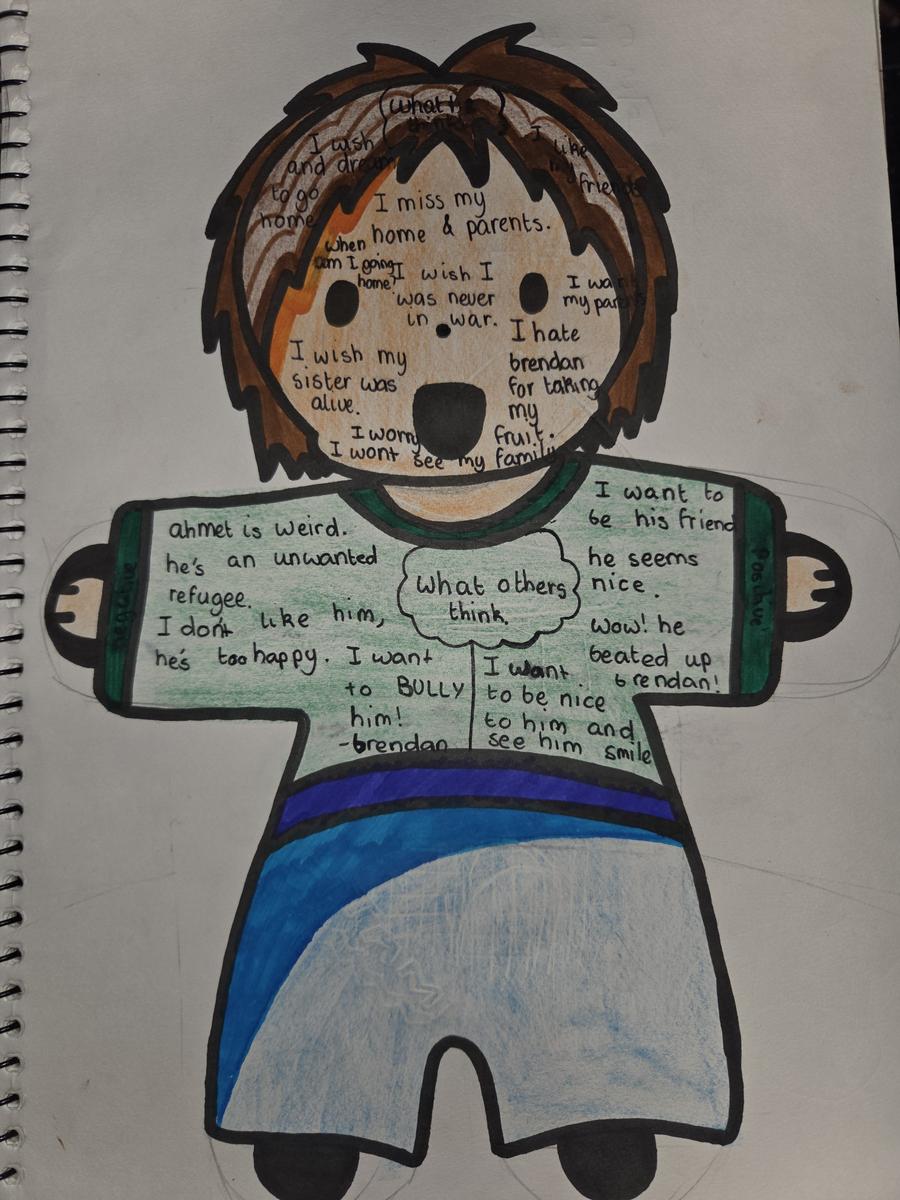 What he
thinks
I wish
and dream
to go
home
I like
my
friends
I miss my
home & parents.
when
am I going
home?
I wish I
was never
in war.
I want
my parents
I wish my
sister was
alive.
I hate
brendan
for taking
my
fruit.
I worry
I wont see my family
ahmet is weird.
he's an unwanted
refugee.
I don't like him,
he's too happy. I want
to BULLY
him!
-brendan
negative
What others
think.
I want to
be his friend
he seems
nice.
Wow! he
beated up
brendan!
I want
to be nice
to him and
see him smile
positive